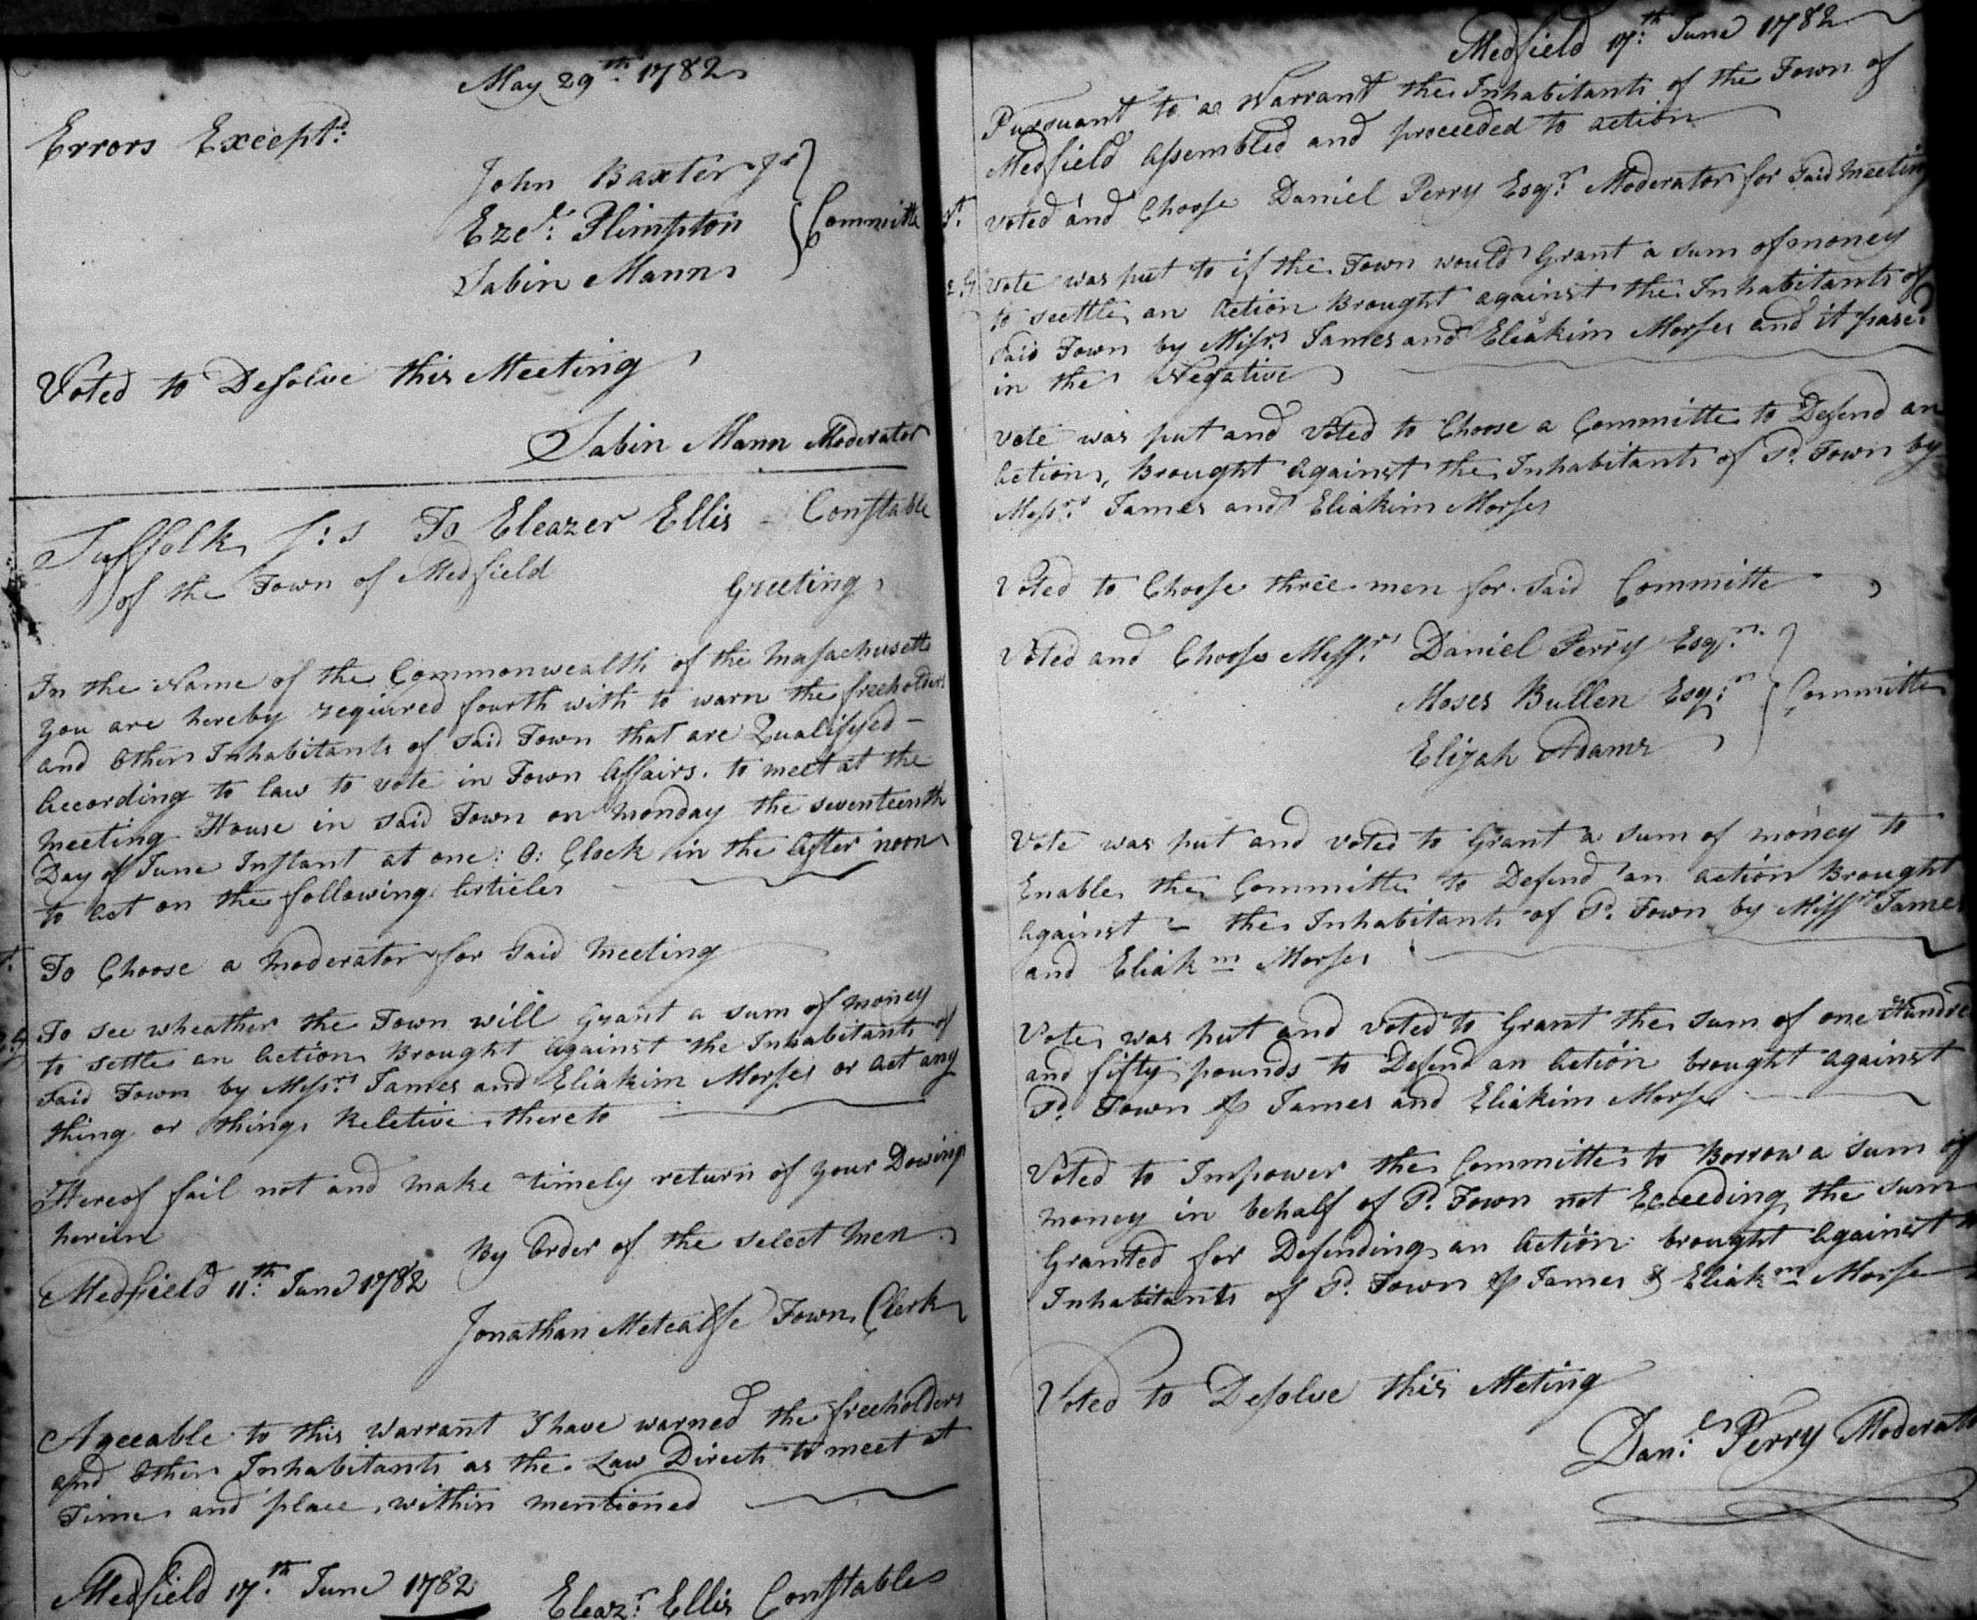 May 29th 1782
Errors Exceptd
John Baxter Jr
Ezel: Plimpton
Committe
Sabin Mann
Voted to Desolve this Meeting
Sabin Mann Moderator
Suffolk s:s To Eleazer Ellis - Constable
of the Town of Medfield
Greeting
In the Name of the Commonwealth of the Masachusetts
you are hereby required fourth with to warn the freeholders
and other Inhabitants of said Town that are Qualifyed -
According to law to vote in Town Affairs. to meet at the
meeting House in said Town on monday the seventeenth
Day of June Instant at one: O: Clock in the After noon
to act on the following Articles
To Choose a moderator for said meeting
To see wheather the Town will Grant a sum of money
to settle an Action Brought against the Inhabitants of
said Town by Messrs James and Eliakim Morses or act any
thing or things Reletive thereto
Hereof fail not and make timely return of your Dowings
herein
By Order of the select men
Medfield 11th June 1782
Jonathan Metcalfe Town Clerk
Ageeable to this Warrant I have warned the freeholders
and other Inhabitants as the Law Directs to meet at
Time and place within mentioned
Medfield 17th June 1782 Eleazr Ellis Constable
Medfield 17th June 1782
Pursuant to a Warrant the Inhabitants of the Town of
Medfield Assembled and proceeded to action
voted and Choose Daniel Perry Esqr Moderator for said meeting
2ly Vote was put to if the Town would Grant a sum of money
to seettle an Action Brought against the Inhabitants of
said Town by Missrs James and Eliakim Morses and it pased
in the Negative
vote was put and voted to Choose a Committe to Defend an
action, Brought against the Inhabitants of Sd. Town by
Messrs James and Eliakim Morses
Voted to Choose three men for said Committe
Voted and Choose Messrs Daniel Perry Esqr.
Moses Bullen Esqr:
Committe
Elijah Adams
Vote was put and voted to Grant a sum of money to
Enable the Committe to Defend an action Brought
against - the Inhabitants of Sd. Town by Missrs James
and Eliakm Morses
Vote was put and voted to Grant the sum of one Hundred
and fifty pounds to Defend an Action brought against
Sd. Town by James and Eliakim Morse
Voted to Impower the Committe to Borrow a sum of
money in behalf of Sd. Town not Exceeding the sum
Granted for Defending an Action brought against the
Inhabitants of Sd. Town by James & Eliakm Morse
Voted to Desolve this Meting
Danl: Perry Moderator